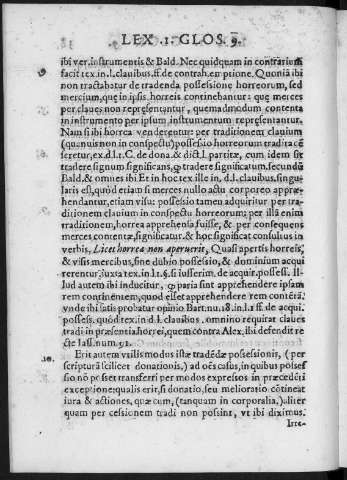 LEX .1. GLOS. 9.
ibi ver. instrumentis & Bald. Nec quidquam in contrarium
9 facit tex. in. l. clauibus. ff. de contrah. emptione. Quoniā ibi
non tractabatur de tradenda possessione horreorum, sed
mercium, quę in ipsis horreis continebantur: quę merces
per claues non repręsentantur, quemadmodum contenta
in instrumento per ipsum instrumentum repręsentantur.
Nam si ibi horrea venderentur: per traditionem clauium
(quanuis non in conspectu) possessio horreorum tradita cē
seretur, ex. d. l. 1. C. de dona. & dict. l. partitæ, cum idem sit
tradere signum significans, ꝙ tradere significatum. secundū
Bald. & omnes ibi Et in hoc tex ille in. d. l. clauibus. singu-
laris est, quòd etiam si merces nullo actu corporeo appræ-
hendantur, etiam visu: possessio tamen adquiritur per tra-
ditionem clauium in conspectu horreorum: per illā enim
traditionem, horrea apprehensa fuisse, & per consequens
merces contentæ, significatur. & hoc significat consultus in
verbis, Licet horrea non aperuerit, Quasi apertis horreis,
& visis mercibus, sine dubio possessio, & dominium acqui
rerentur, iuxta tex. in. l. 1. §. si iusserim. de acquir. possess. Il-
lud autem ibi inducitur, ꝙ paria sint apprehendere ipsam
rem continentem, quod esset apprehendere rem contētā.
vnde ibi satis probatur opinio Bart. nu. 18. in. l. 1. ff. de acqui.
possess. quòd tex. in. d. l. clauibus. omnino requirat claues
tradi in præsentia horrei, quem contra Alex. ibi defendit re
cte Ias. num. 52.
10. Erit autem vtilis modus istæ tradēdæ possesionis, (per
scripturā scilicet donationis,) ad oēs casus, in quibus posses
sio nō posset transferri per modos expressos in præcedēti
exceptione: qualis erit, si donatio, seu melioratio cōtineat
iura & actiones, quæ cum, (tanquam in corporalia,) aliter
quam per cessionem tradi non possint, vt ibi diximus.
Irre-